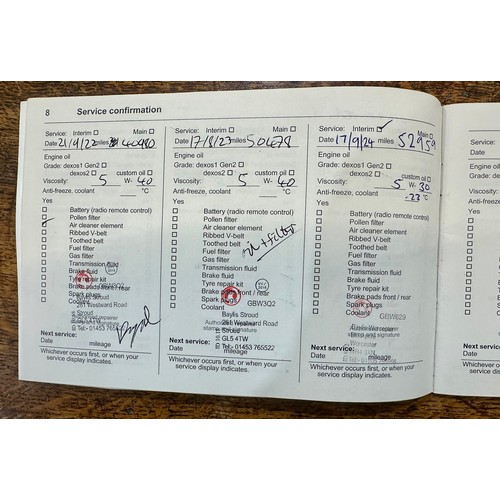 8 Service confirmation
Service: Interim Main
Date 21/9/22 miles 40480
Engine oil
Grade: dexos1 Gen2
dexos2 custom oil
Viscosity: 5 W- 40
Anti-freeze, coolant °C
Yes
Battery (radio remote control)
Pollen filter
Air cleaner element
Ribbed V-belt
Toothed belt
Fuel filter
Gas filter
Transmission fluid
Brake fluid
Tyre repair kit
Brake pads front / rear
Spark plugs
Coolant
GBW3Q2
Baylis Stroud
261 Westward Road
Stroud
Tel:- 01453 765522
Next service:
Date mileage
Whichever occurs first, or when your
service display indicates.
Service: Interim Main
Date 17/8/23 miles 50678
Engine oil
Grade: dexos1 Gen2
dexos2 custom oil
Viscosity: 5 W- 40
Anti-freeze, coolant °C
Yes
Battery (radio remote control)
Pollen filter
Air cleaner element
Ribbed V-belt
Toothed belt
Fuel filter
Gas filter
Transmission fluid
Brake fluid
Tyre repair kit
Brake pads front / rear
Spark plugs
Coolant
oil + filter
GBW3Q2
Baylis Stroud
261 Westward Road
Stroud
GL5 4TW
Tel:- 01453 765522
Next service:
Date mileage
Whichever occurs first, or when your
service display indicates.
Service: Interim Main
Date 17/9/24 miles 52959
Engine oil
Grade: dexos1 Gen2
dexos2 custom oil
Viscosity: 5 W- 30
Anti-freeze, coolant -23 °C
Yes
Battery (radio remote control)
Pollen filter
Air cleaner element
Ribbed V-belt
Toothed belt
Fuel filter
Gas filter
Transmission fluid
Brake fluid
Tyre repair kit
Brake pads front / rear
Spark plugs
Coolant
Worcester
stamp and signature
Next service:
Date mileage
Whichever occurs first, or when your
service display indicates.